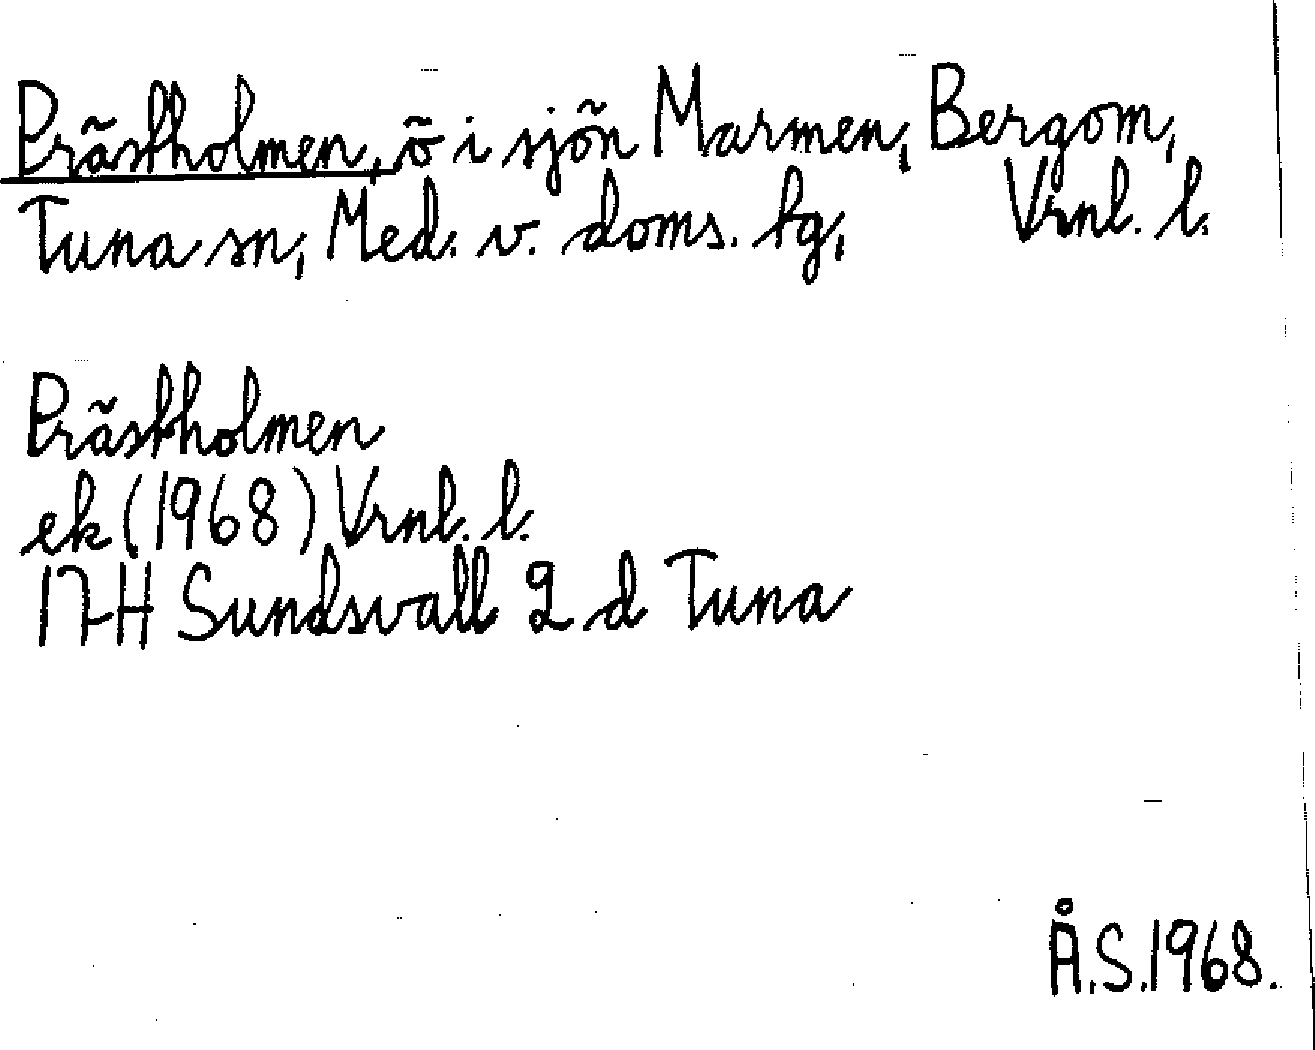 Prästholmen, ö i sjön Marmen, Bergom,
Tuna sn, Med. v. doms. tg, Vrnl. l.
Prästholmen
ek (1968) Vrnl. l.
17H Sundsvall 2 d Tuna
Å.S.1968.